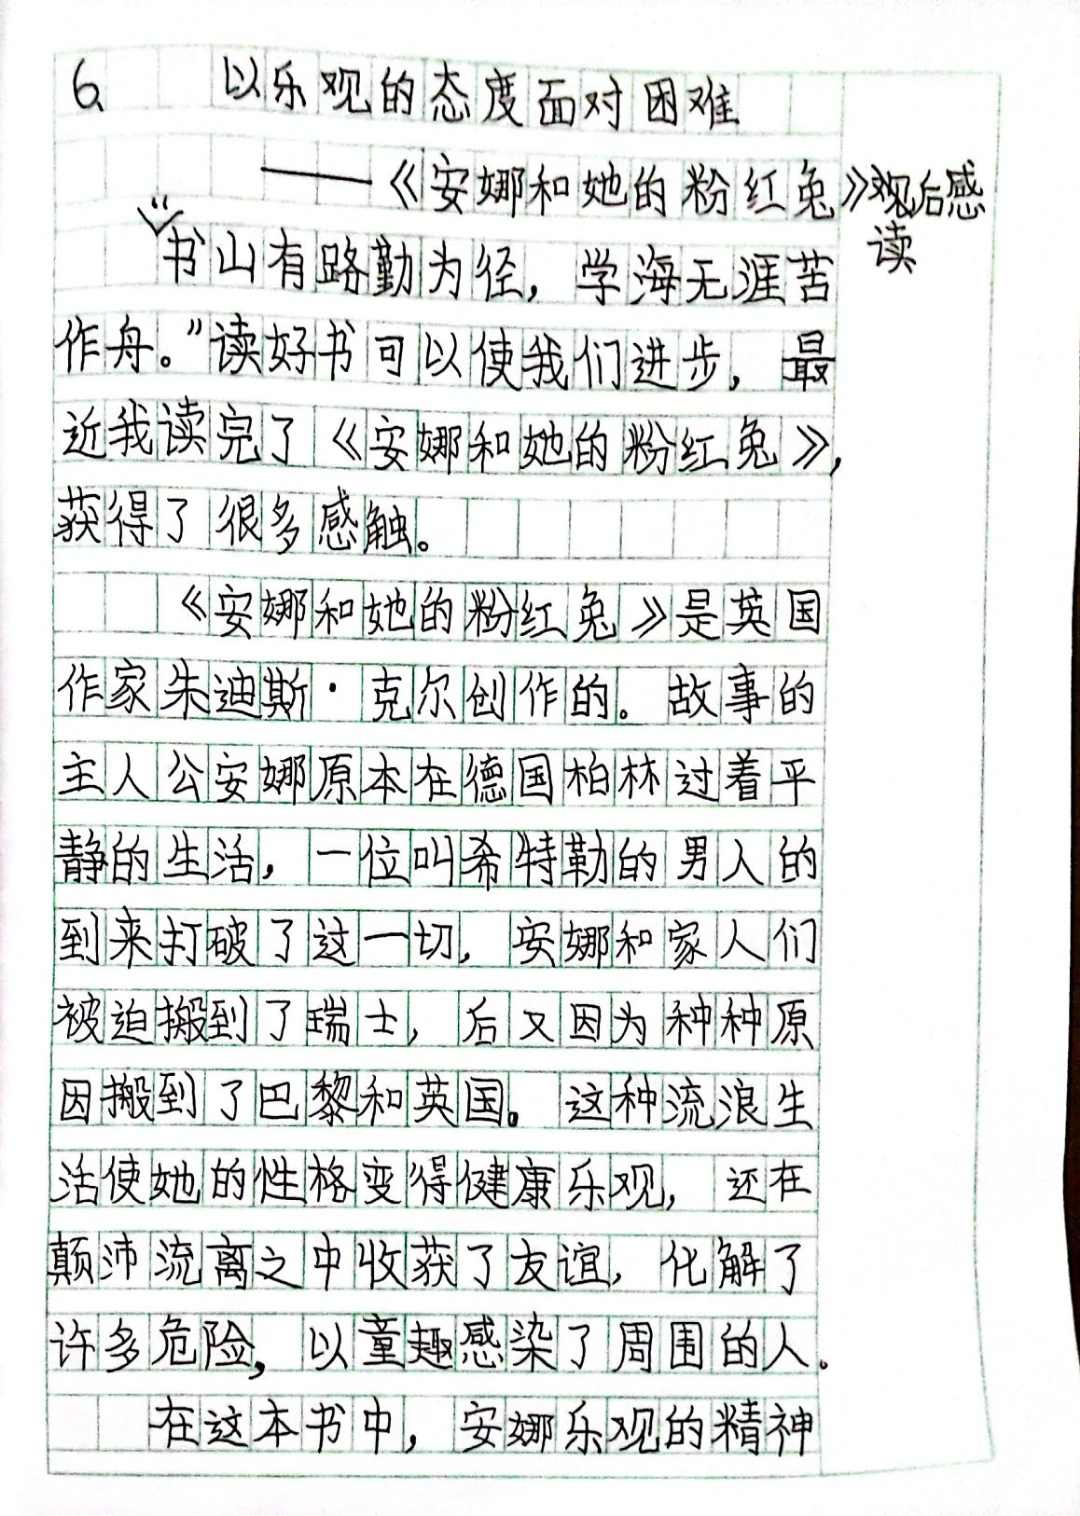 6、 以乐观的态度面对困难
——《安娜和她的粉红兔》观后感
读
“书山有路勤为径，学海无涯苦
作舟。”读好书可以使我们进步，最
近我读完了《安娜和她的粉红兔》，
获得了很多感触。
《安娜和她的粉红兔》是英国
作家朱迪斯·克尔创作的。故事的
主人公安娜原本在德国柏林过着平
静的生活，一位叫希特勒的男人的
到来打破了这一切，安娜和家人们
被迫搬到了瑞士，后又因为种种原
因搬到了巴黎和英国。这种流浪生
活使她的性格变得健康乐观，还在
颠沛流离之中收获了友谊，化解了
许多危险，以童趣感染了周围的人。
在这本书中，安娜乐观的精神